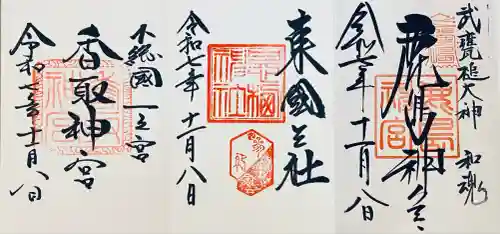 武甕槌大神 和魂
鹿島神宮
令和七年十一月八日
東国三社
息栖神社
令和七年十一月八日
下総國一之宮
香取神宮
令和七年十一月八日